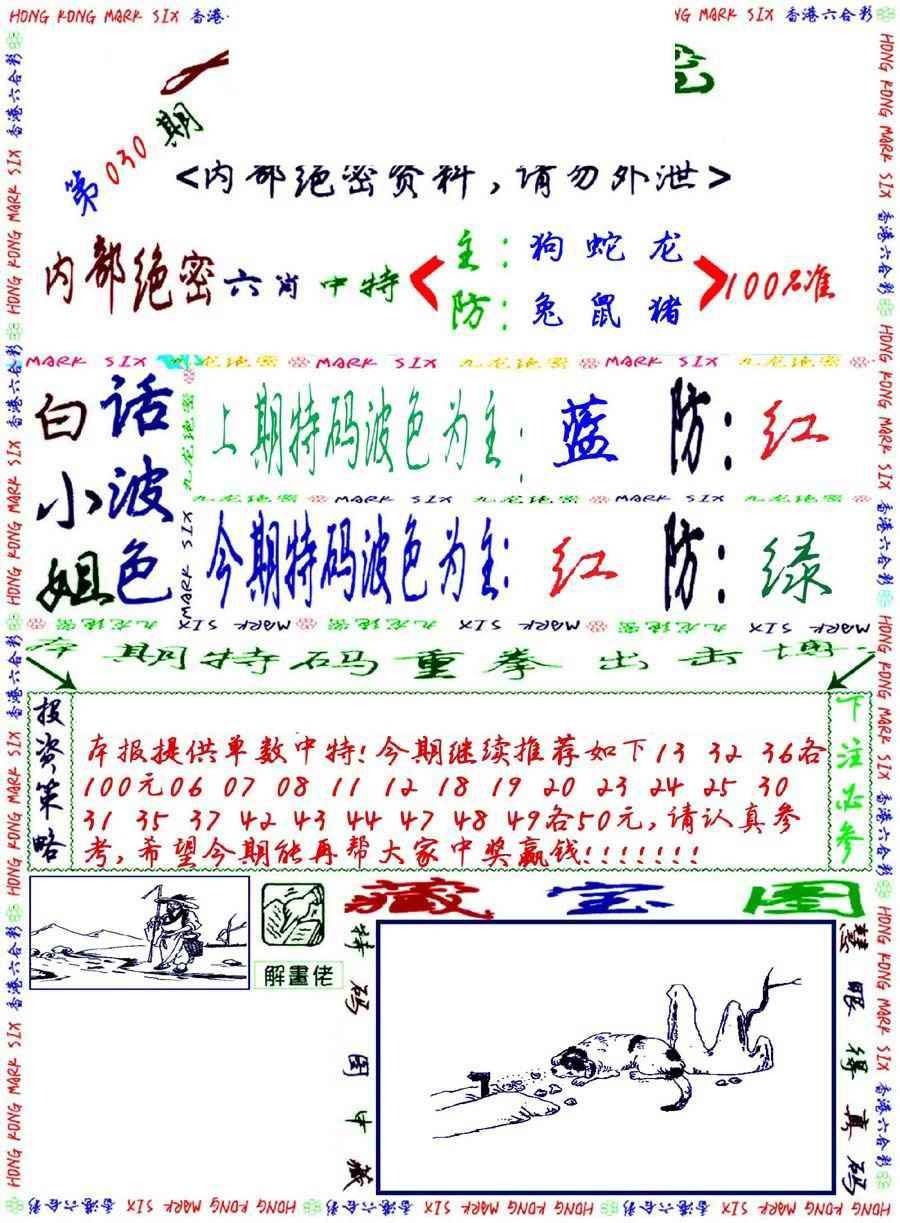 HONG KONG MARK SIX 香港
NG MARK SIX 香港六合彩
第030期
<内部绝密资料,请勿外泄>
内部绝密六肖中特
主:狗 蛇 龙
防:兔 鼠 猪
100%准
MARK SIX 九龙绝密 MARK SIX 九龙绝密 MARK SIX 九龙绝密
白话
小波
姐色
上期特码波色为主:蓝 防:红
九龙绝密 MARK SIX 九龙绝密 MARK SIX 九龙绝密
今期特码波色为主:红 防:绿
MARK SIX 九龙绝密 MARK SIX 九龙绝密 MARK SIX 九龙绝密
本期特码重拳出击博
投资策略
本报提供单数中特!今期继续推荐如下13 32 36各
100元06 07 08 11 12 18 19 20 23 24 25 30
31 35 37 42 43 44 47 48 49各50元,请认真参
考,希望今期能再帮大家中奖赢钱!!!!!!!
下注必参
解畫佬
藏宝图
特码图中藏
慧眼得真码
HONG KONG MARK SIX 香港六合彩